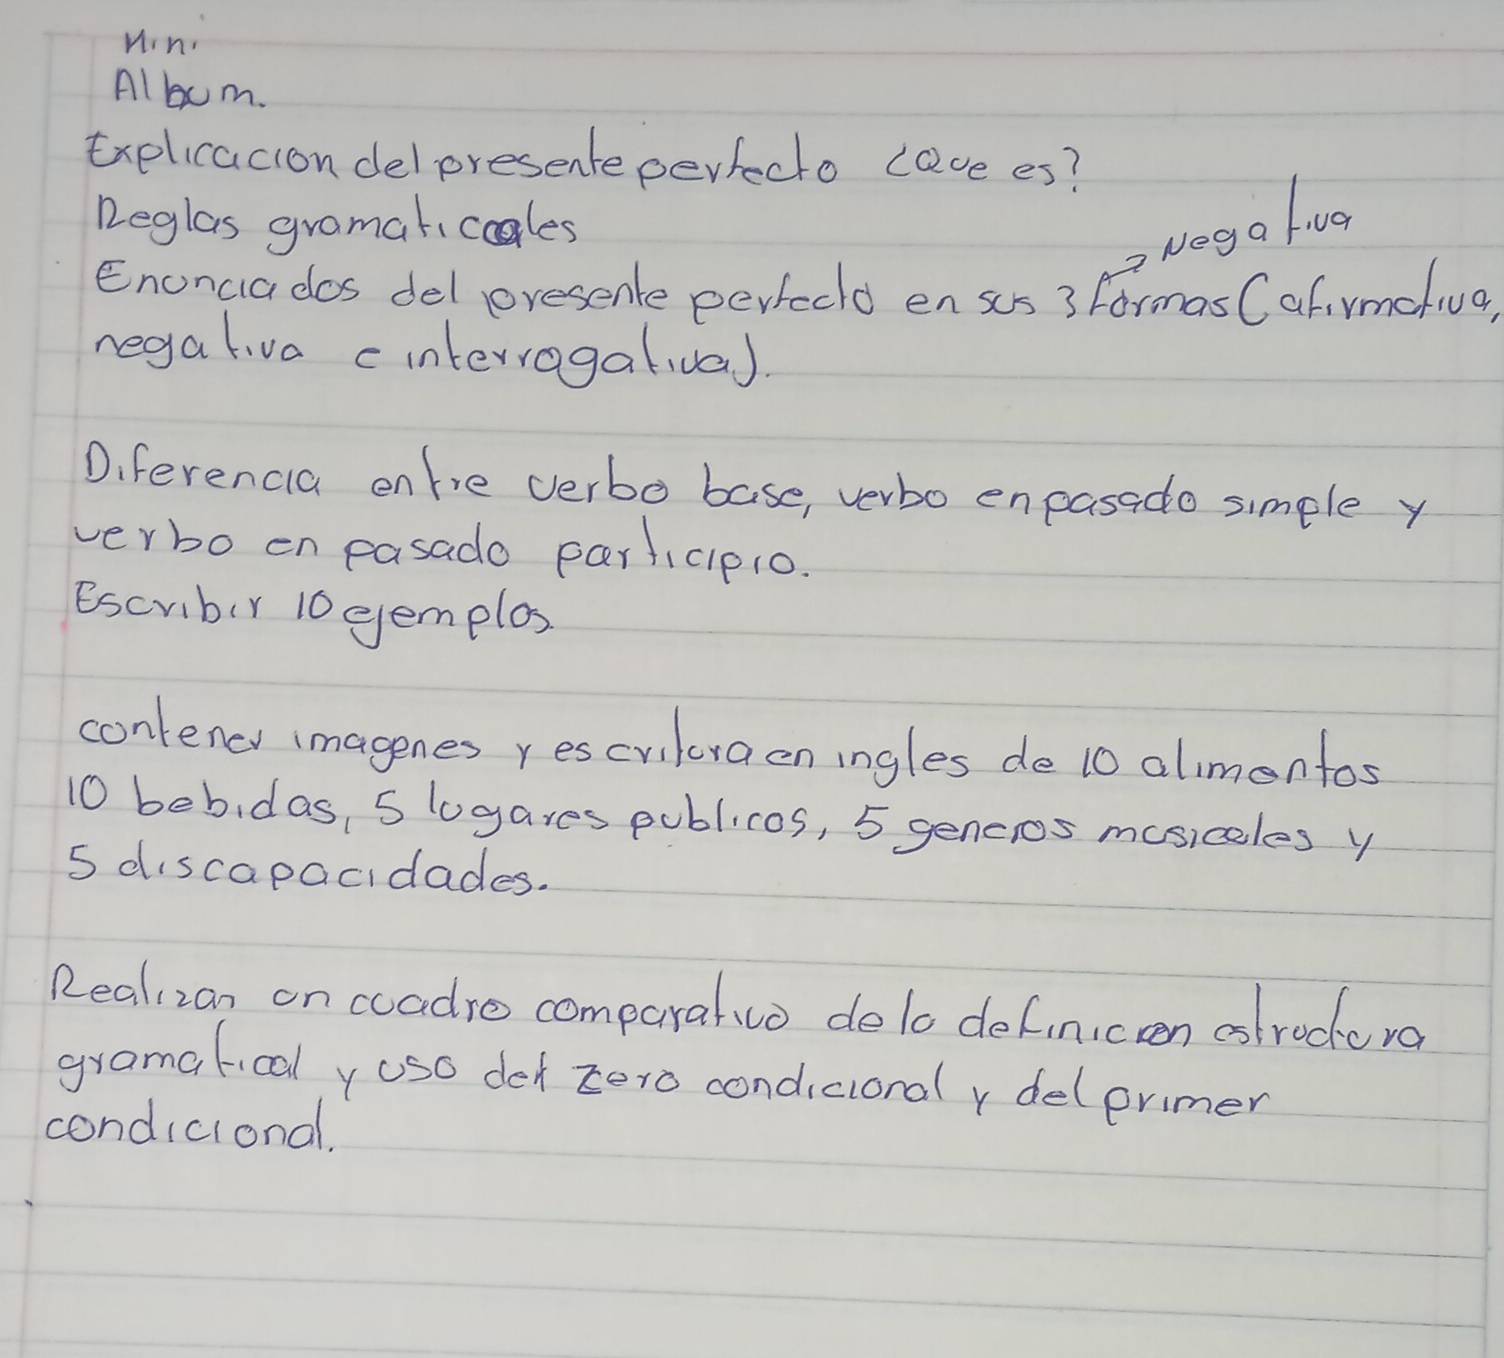 Mini
Album.
Explicacion del presente perfecto ¿Que es?
Reglas gramaticales
→ Negativa
Enunciados del presente perfecto en sus 3 formas (afirmativa,
negativa e interrogativa).
Diferencia entre verbo base, verbo en pasado simple y
verbo en pasado participio.
Escribir 10 ejemplos
contener imagenes y escritura en ingles de 10 alimentos
10 bebidas, 5 lugares publicos, 5 generos musicales y
5 discapacidades.
Realizar un cuadro comparativo de la definicion estructura
gramatical y uso del zero condicional y del primer
condicional.